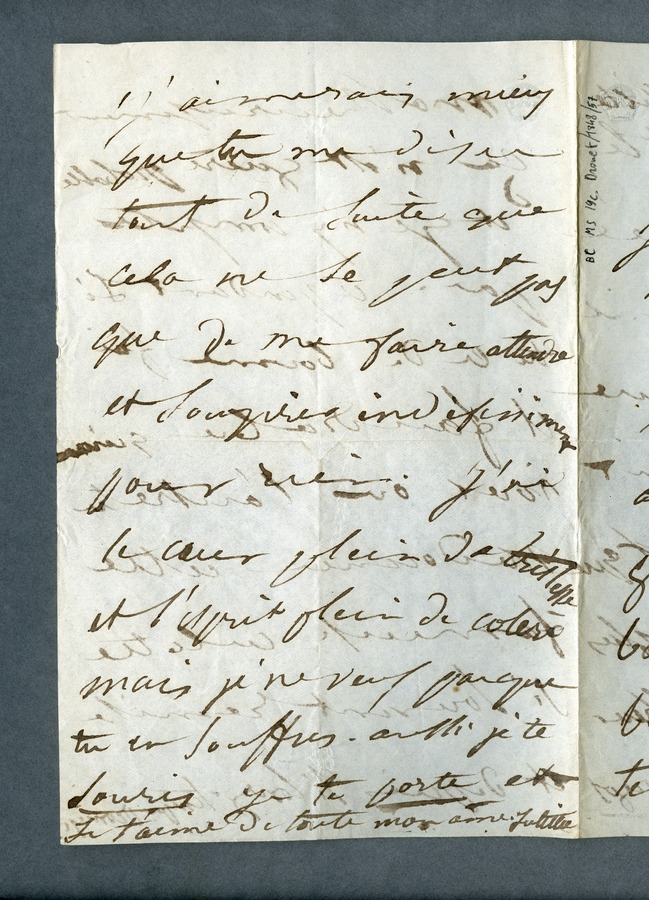 J'aimerais mieux
que tu me dise
tout de suite que
cela ne se peut pas
que de me faire attendre
et soupirer indéfiniment
pour rien. J'ai
le cœur plein de tristesse
et l'esprit plein de colère
mais je ne veux pas que
tu en souffres. aussi je te
souris je te porte et
Je t'aime de toute mon âme. Juliette
BC MS 19c. Drouet/1848/57